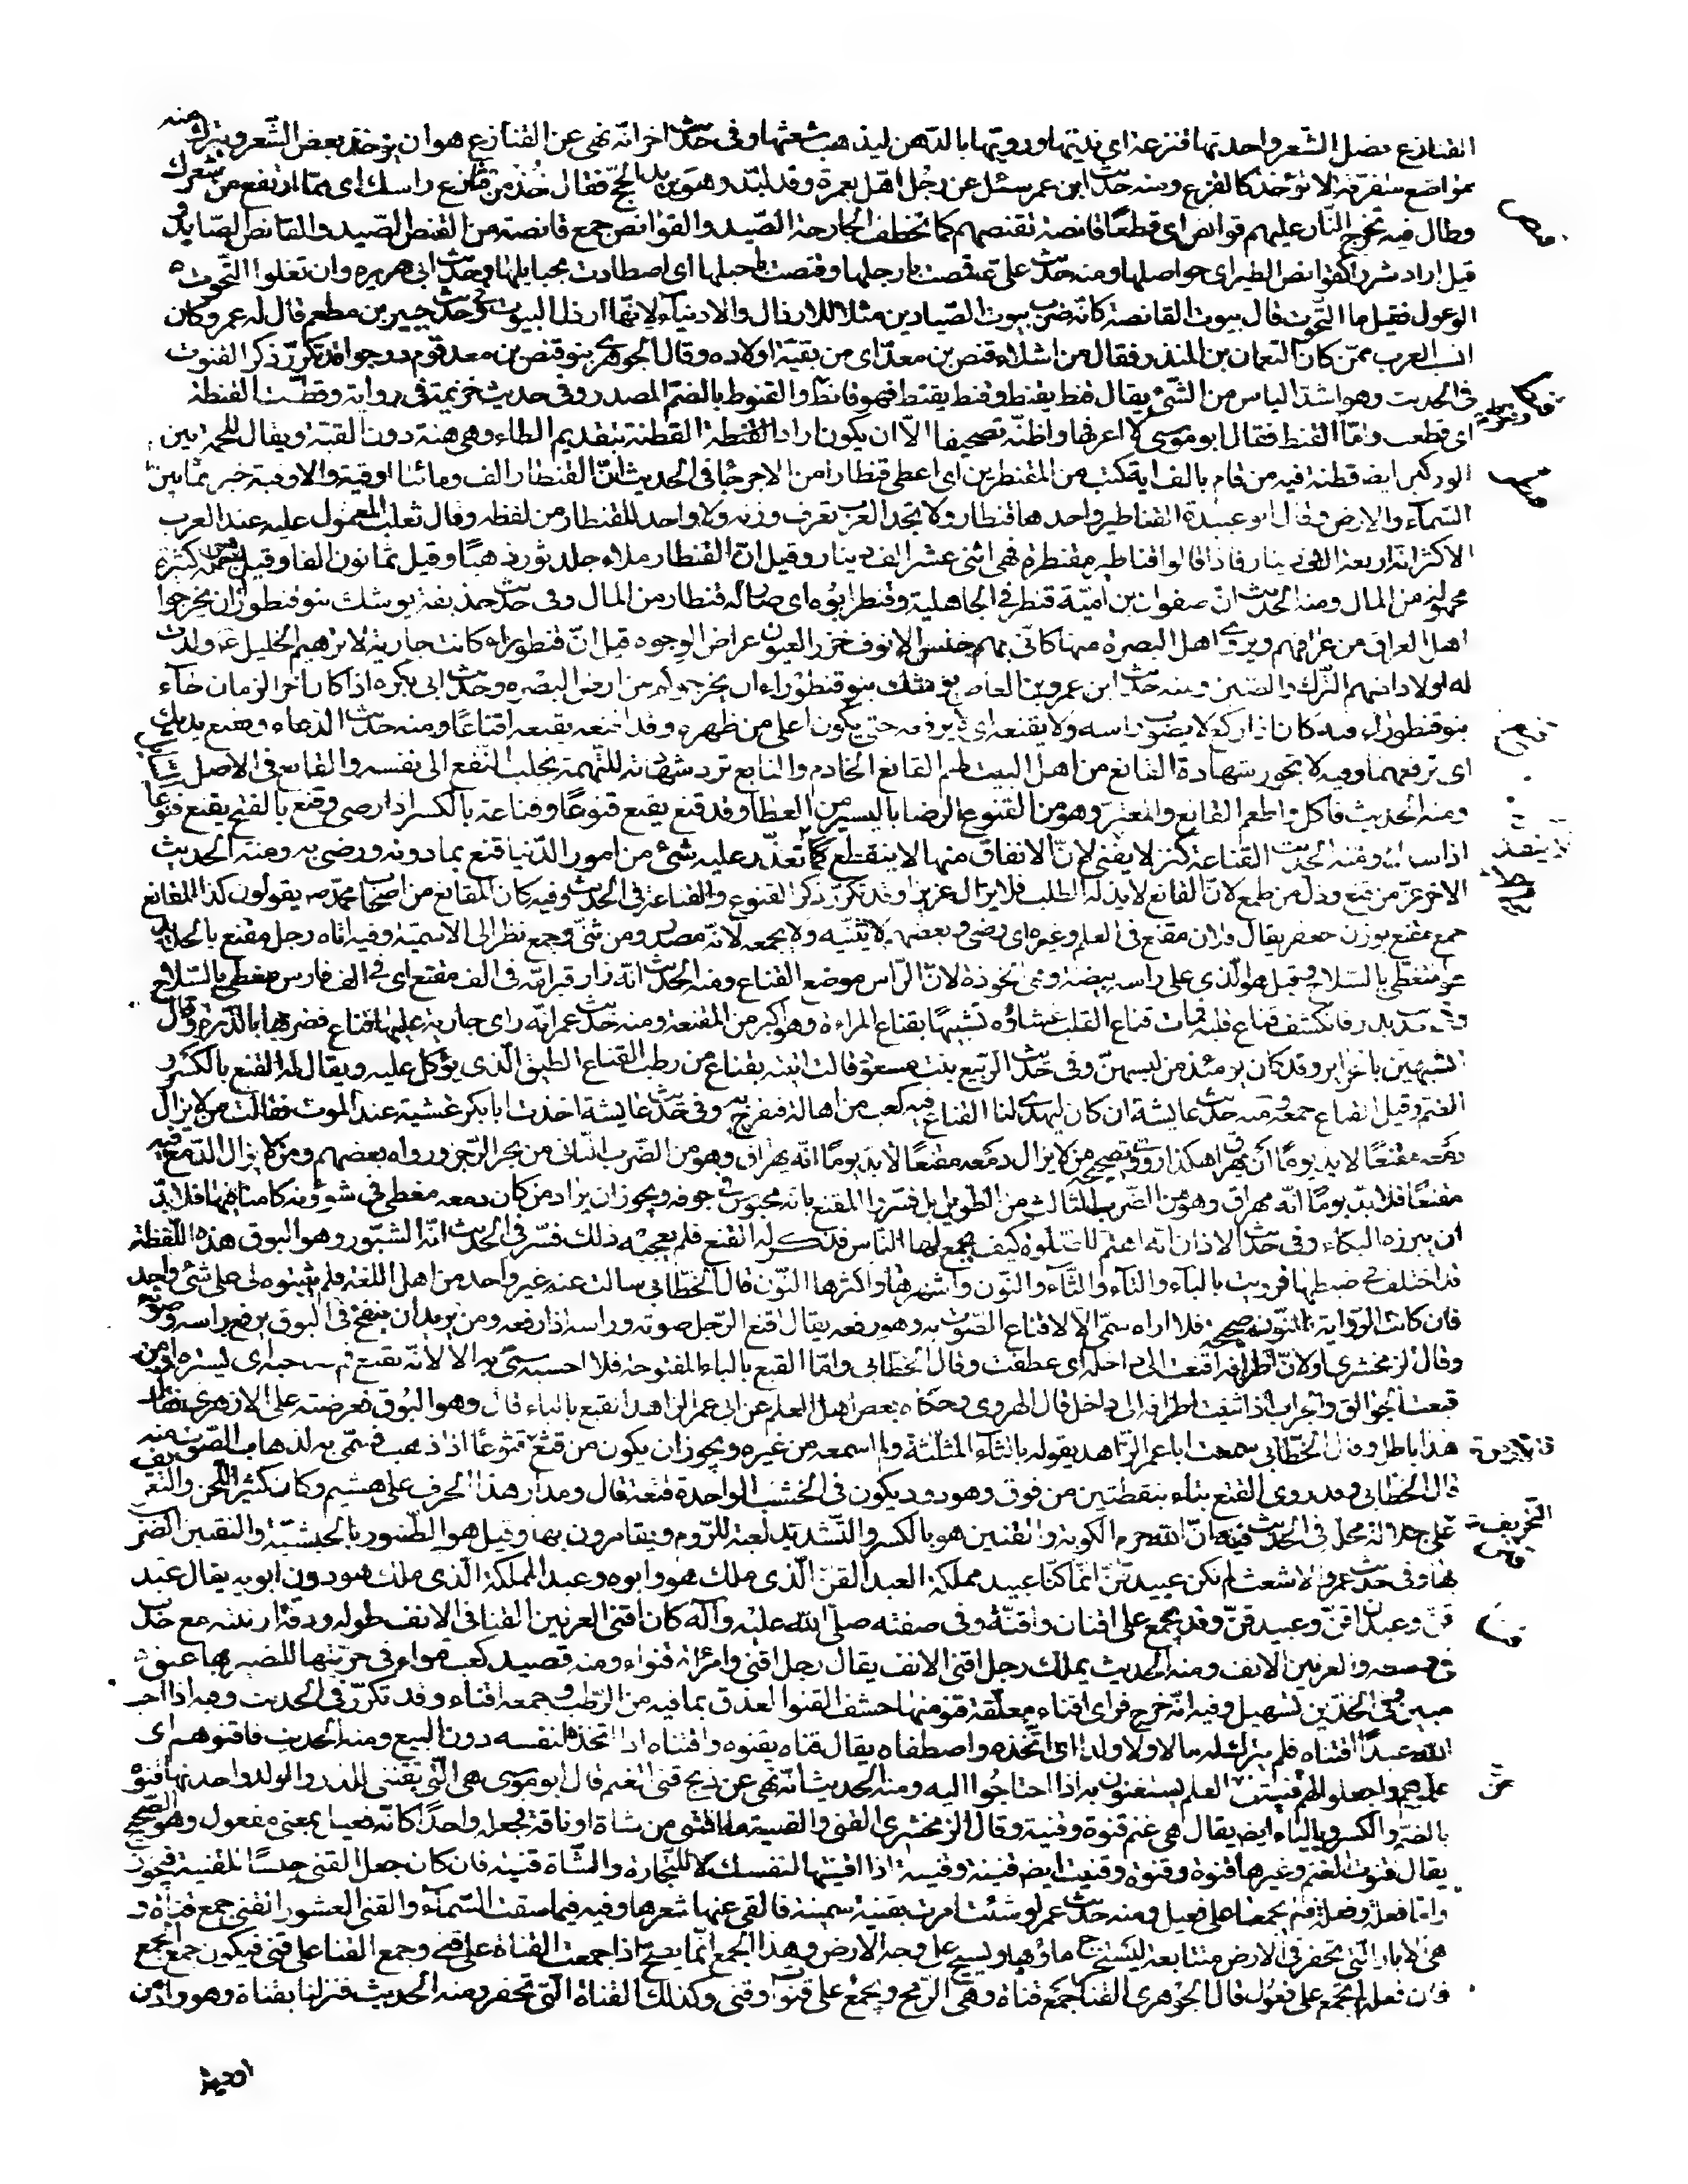 القنازع خصل الشعر واحدتها قنزعة اى نديتها ورويتها بالدهن ليذهب شعثها وفى حديث اخر انه نهى عن القنازع هو ان يؤخذ بعض الشعر ويترك منه
مواضع متفرقة لا تؤخذ كالقزع ومنه حديث ابن عمر سئل عن رجل اهل بعمرة وقد لبد وهو يريد الحج فقال خذ من قنازع راسك اى مما ارتفع من شعرك
وطال فيه تخرج النار عليهم قوانص اى قطعا قانصة تقنصهم كما تختطف الجارحة الصيد والقوانص جمع قانصة من القنص الصيد والقانص الصايد و
قيل اراد شررا كقوانص الطير اى حواصلها ومنه حديث على قمصت بارجلها وقنصت باحبلها اى اصطادت بحبايلها وحديث ابى هريره وان تعلوا التحوت
الوعول فقيل ما التحوت قال بيوت القانصة كانه ضرب بيوت الصيادين مثلا للارذال والادنياء لانها ارذل البيوت وفى حديث جبير بن مطعم قال له عمر وكان
انسب العرب ممن كان النعمان بن المنذر فقال من اشلاء قنص بن معد اى من بقية اولاده وقال الجوهرى بنو قنص بن معد قوم درجوا قد تكرر ذكر القنوت
فى الحديث وهو اشد الياس من الشئ يقال قنط يقنط وقنط يقنط فهو قانط والقنوط بالضم المصدر وفى حديث خزيمة فى رواية وقطت القنطة
اى قطعت واما القنطة فقال ابو موسى لا اعرفها واظنه تصحيفا الا ان يكون اراد القطنة بتقديم الطاء وهى هنة دون القبة ويقال للحمة بين
الوركين ايض قطنة فيه من قام بالف اية كتب من المقنطرين اى اعطى قنطارا من الاجر جا فى الحديث ان القنطار الف ومائتا اوقية والاوقية خير مما بين
السماء والارض وقال ابو عبيدة القناطير واحدها قنطار ولا تجد العرب تعرف وزنه ولا واحد للقنطار من لفظه وقال ثعلب المعمول عليه عند العرب
الاكثر انه اربعة الاف دينار فاذا قالوا قناطير مقنطرة فهى اثنى عشر الف دينار وقيل ان القنطار ملاء جلد ثور ذهبا وقيل ثمانون الفا وقيل هو جملة كثيرة
مجهولة من المال ومنه الحديث ان صفوان بن امية قنطر فى الجاهلية وقنطر ابوه اى صار له قنطار من المال وفى حديث حذيفة يوشك بنو قنطورا ان يخرجوا
اهل العراق من عراقهم ويروى اهل البصرة منها كانى بهم خنس الانوف خزر العيون عراض الوجوه قيل ان قنطوراء كانت جارية لابرهيم الخليل ع ولدت
له اولادا منهم الترك والصين ومنه حديث ابن عمرو بن العاص يوشك بنو قنطوراء ان يخرجوكم من ارض البصره وحديث ابى بكره اذا كان اخر الزمان جاء
بنو قنطوراء فيه كان اذا ركع لا يصوب راسه ولا يقنعه اى لا يرفعه حتى يكون اعلى من ظهره وقد اقنعه يقنعه اقناعا ومنه حديث الدعاء وتقنع يديك
اى ترفعهما وفيه لا تجوز شهادة القانع من اهل البيت لهم القانع الخادم والتابع ترد شهادته للتهمة بجلب النفع الى نفسه والقانع فى الاصل السائل
ومنه الحديث فاكل واطعم القانع والمعتر وهو من القنوع الرضا باليسير من العطا وقد قنع يقنع قنوعا وقناعة بالكسر اذا رضى وقنع بالفتح يقنع قنوعا
اذا سال ومنه الحديث القناعة كنز لا يفنى لان الانفاق منها لا ينقطع كلما تعذر عليه شئ من امور الدنيا قنع بما دونه ورضى به ومنه الحديث
الاخر عز من قنع وذل من طمع لان القانع لا يذله الطلب فلا يزال عزيزا وقد تكرر ذكر القنوع والقناعة فى الحديث وفيه كان المقانع من اصحاب محمد ص يقولون كذا المقانع
جمع مقنع بوزن جعفر يقال فلان مقنع فى العلم وغيره اى رضى وبعضهم لا يثنيه ولا يجمعه لانه مصدر ومن ثنى وجمع نظر الى الاسمية وفيه اتاه رجل مقنع بالحديد
هو متغطى بالسلاح وقيل هو الذى على راسه بيضة وهى الخوذة لان الراس موضع القناع ومنه الحديث انه زار قبر امه فى الف مقنع اى فى الف فارس مغطى بالسلاح
وفى حديث بدر فانكشف قناع قلبه فمات قناع القلب غشاؤه تشبيها بقناع المراءة وهو اكبر من المقنعة ومنه حديث عمر انه راى جارية عليها قناع فضربها بالدره وقال
اتشبهين بالحراير وقد كان يومئذ من لبسهن وفى حديث الربيع بنت معوذ قالت اتيته بقناع من رطب القناع الطبق الذى يؤكل عليه ويقال له القنع بالكسر و
الضم وقيل القناع جمعه ومنه حديث عايشة ان كان ليهدى لنا القناع فيه كعب من اهالة فنفرح به وفى حديث عايشة اخذت ابا بكر غشية عند الموت فقالت من لا يزال
دمعه مقنعا لا بد يوما ان يهراق هكذا روى وتصحيحه من لا يزال دمعه مقنعا لا بد يوما انه يهراق وهو من الضرب الثانى من بحر الرجز ورواه بعضهم ومن لا يزال الدمع فيه
مقنعا فلا بد يوما انه مهراق وهو من الضرب الثالث من الطويل فسروا المقنع بانه محبوس فى جوفه ويجوز ان يراد من كان دمعه مغطى فى شؤونه كامنا فيها فلا بد
ان يبرزه البكاء وفى حديث الاذان انه اهتم للصلوة كيف يجمع لها الناس فذكر له القنع فلم يعجبه ذلك فسر فى الحديث انه الشبور وهو البوق هذه اللفظة
قد اختلف فى ضبطها فرويت بالباء والتاء والثاء والنون واشهرها واكثرها النون قال الخطابى سالت عنه غير واحد من اهل اللغة فلم يثبتوه لى على شئ واحد
فان كانت الرواية بالنون صحيحة فلا اراه سمى الا لاقناع الصوت به وهو رفعه يقال اقنع الرجل صوته وراسه اذا رفعه ومن يريد ان ينفخ فى البوق يرفع راسه وصوته
وقال الزمخشرى او لان اطرافه اقنعت الى داخله اى عطفت وقال الخطابى واما القبع بالباء المفتوحة فلا احسبه سمى به الا لانه يقبع فم صاحبه اى يستره او من
قبعت الجوالق والجراب اذا ثنيت اطرافه الى داخل قال الهروى وحكاه بعض اهل العلم عن ابى عمر الزاهد القثع بالثاء قال وهو البوق فعرضته على الازهرى فقال
هذا باطل وقال الخطابى سمعت ابا عمر الزاهد يقوله بالثاء المثلثة ولم اسمعه من غيره ويجوز ان يكون من قثع قثوعا اذا ذهب فسمى به لذهاب الصوت منه
قال الخطابى وقد روى القتع بتاء بنقطتين من فوق وهو دود يكون فى الخشب الواحدة قتعة قال ومدار هذا الحرف على هشيم وكان كثير اللحن والتحريف
على جلالة محله فى الحديث فيه ان الله حرم الكوبة والقنين هو بالكسر والتشديد لعبة للروم ويقامرون بها وقيل هو الطنبور بالحبشية والتقنين الضرب
بها وفى حديث عمرو الاشعث لم نكن عبيد قن انما كنا عبيد مملكة العبد القن الذى ملك هو وابوه وعبد المملكة الذى ملك هو دون ابويه يقال عبد
قن وعبدان قن وعبيد قن وقد يجمع على اقنان واقنة وفى صفته صلى الله عليه وآله كان اقنى العرنين القنا فى الانف طوله ودقة ارنبته مع حدب
فى وسطه والعرنين الانف ومنه الحديث يملك رجل اقنى الانف يقال رجل اقنى وامراة قنواء ومنه قصيد كعب قنواء فى حرتيها للبصير بها عتق
مبين وفى الخدين تسهيل وفيه انه خرج فراى اقناء معلقة قنو منها حشف القنو العذق بما فيه من الرطب وجمعه اقناء وقد تكرر فى الحديث وفيه اذا احب
الله عبدا اقتناه فلم يترك له مالا ولا ولدا اى اتخذه واصطفاه يقال قناه يقنوه واقتناه اذا اتخذه لنفسه دون البيع ومنه الحديث فاقنوهم اى
علموهم واجعلوا لهم قنية من العلم يستغنون به اذا احتاجوا اليه ومنه الحديث انه نهى عن ذبح قنى الغنم قال ابو موسى هى التى يقتنى للدر والولد واحدتها قنوة
بالضم والكسر وبالياء ايض يقال هى غنم قنوة وقنية وقال الزمخشرى القنى والقنية ما اقتنى من شاة او ناقة فجعله واحدا كانه فعيل بمعنى مفعول وهو الصحيح
يقال قنوت الغنم وغيرها قنوة وقنوة وقنيت ايض قنية وقنية اذا اقتنيتها لنفسك لا للتجارة والشاة قنية فان كان جعل القنى جنسا للقنية فيجوز
واما فعلة وفعلة فلم يجمعا على فعيل ومنه حديث عمر لو شئت امرت بقنية سمينة فالقى عنها شعرها وفيه فيما سقت السماء والقنى العشور القنى جمع قناة و
هى الابار التى تحفر فى الارض متتابعة ليستخرج ماؤها ويسيح على وجه الارض وهذا الجمع انما يصح اذا جمعت القناة على قنى وجمع القنا على قنى فيكون جمع الجمع
فان فعلة لم تجمع على فعول قال الجوهرى القنا جمع قناة وهى الرمح ويجمع على قنوات وقنى وكذلك القناة التى تحفر ومنه الحديث فنزلنا بقناة وهو واد من
قنص
قنط
قنع
قنن